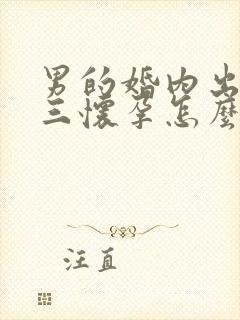 男的婚内出
三懷孕怎麼
汪直